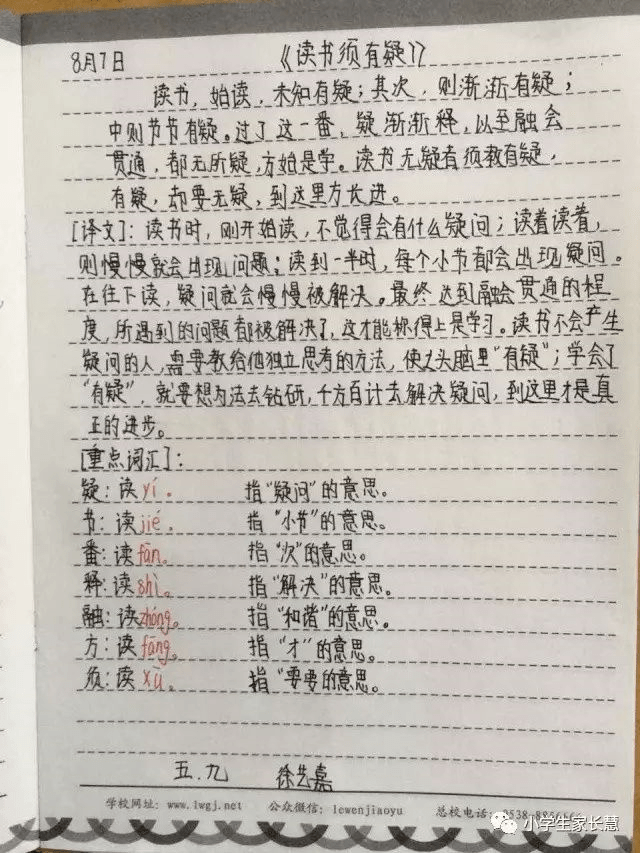 8月7日 《读书须有疑》
读书,始读,未知有疑;其次,则渐渐有疑;
中则节节有疑。过了这一番,疑渐渐释,以至融会
贯通,都无所疑,方始是学。读书无疑者须教有疑,
有疑,却要无疑,到这里方长进。
[译文]:读书时,刚开始读,不觉得会有什么疑问;读着读着,
则慢慢就会出现问题;读到一半时,每个小节都会出现疑问。
在往下读,疑问就会慢慢被解决。最终达到融会贯通的程
度,所遇到的问题都被解决了,这才能称得上是学习。读书不会产生
疑问的人,需要教给他独立思考的方法,使头脑里"有疑";学会了
"有疑",就要想办法去钻研,千方百计去解决疑问,到这里才是真
正的进步。
[重点词汇]:
疑:读yí。 指"疑问"的意思。
节:读jié。 指"小节"的意思。
番:读fān。 指"次"的意思。
释:读shì。 指"解决"的意思。
融:读zhóng。 指"和谐"的意思。
方:读fāng。 指"才"的意思。
须:读xū。 指"要要的意思。
五.九 徐艺嘉
学校网址:www.lwgj.net 公众微信:lewenjiaoyu 总校电话:0538-
小学生家长慧